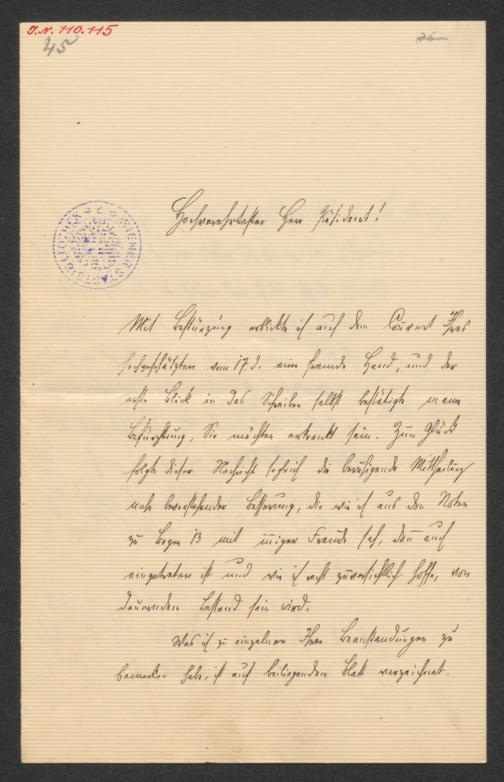 J.N. 110.115
45
Hochverehrtester Herr Präsident!
Mit Bestürzung erblickte ich auf dem Couvert Ihres
hochgeschätzten vom 17. d. eine fremde Hand, und der
erste Blick in das Schreiben selbst bestätigte meine
Befürchtung, Sie möchten erkrankt sein. Zum Glück
folgte dieser Nachricht sogleich die beruhigende Mittheilung
nahe bevorstehender Besserung, die wie ich aus den Noten
zu Bogen 13 mit inniger Freude sah, denn auch
eingetreten ist und wie ich recht zuversichtlich hoffe, von
dauerndem Bestand sein wird.
Was ich zu einzelnen Ihrer Beanstandungen zu
bemerken habe, ist auf beiliegendem Blatt verzeichnet.